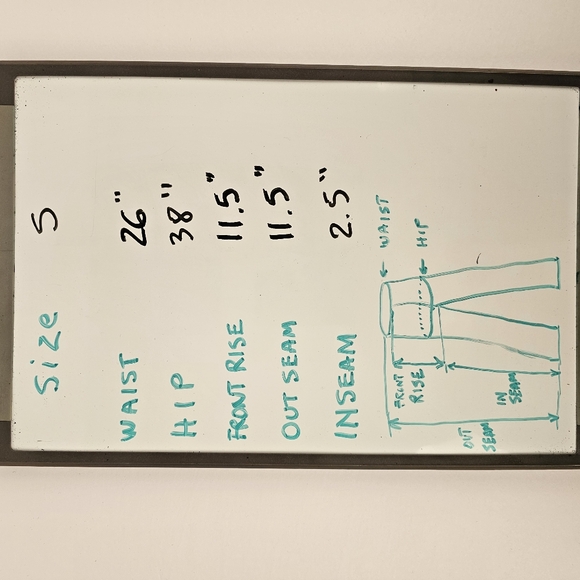 Size S
WAIST 26"
HIP 38"
FRONT RISE 11.5"
OUT SEAM 11.5"
INSEAM 2.5"
WAIST
HIP
FRONT
RISE
IN
SEAM
OUT
SEAM